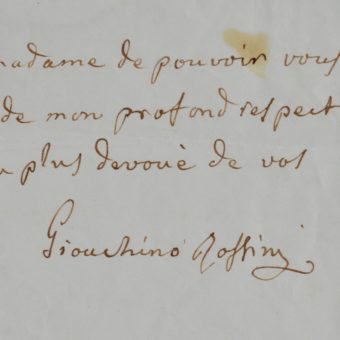 madame de pouvoir vous
de mon profond respect
plus devoué de vos
Giouchino Rossini